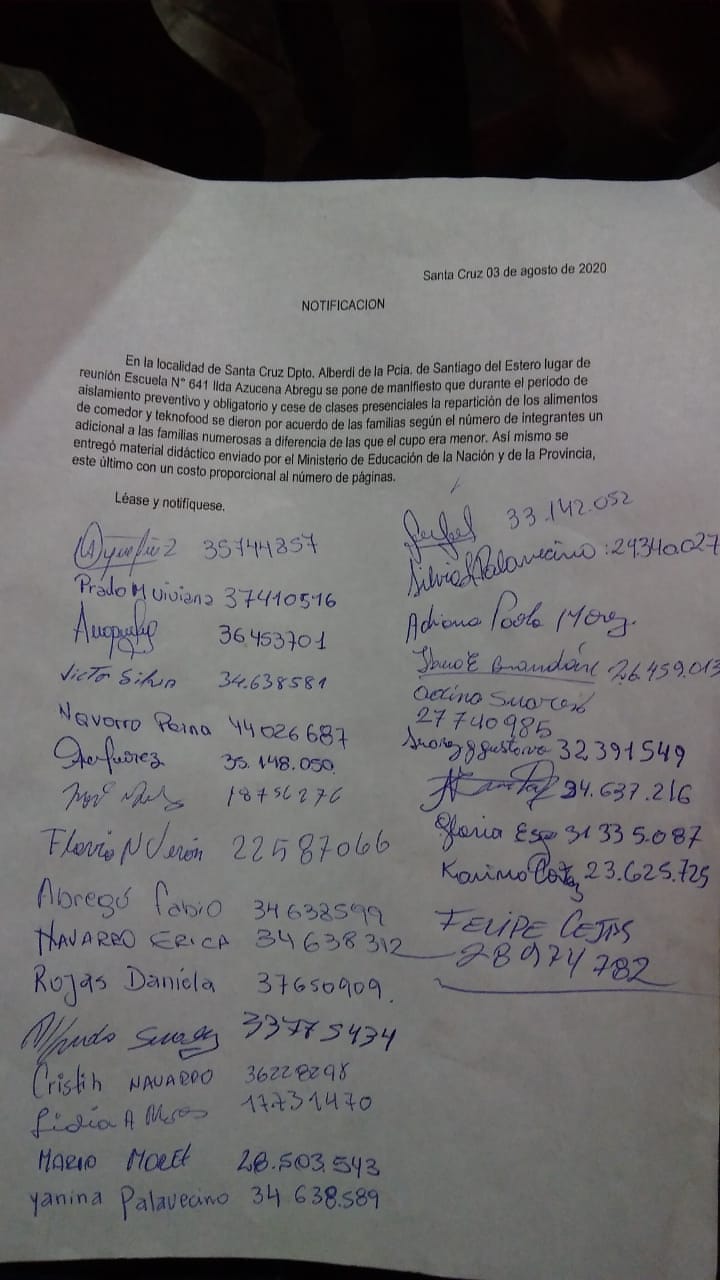 Santa Cruz 03 de agosto de 2020
NOTIFICACION
En la localidad de Santa Cruz Dpto. Alberdi de la Pcia. de Santiago del Estero lugar de
reunión Escuela N° 641 Ilda Azucena Abregu se pone de manifiesto que durante el periodo de
aislamiento preventivo y obligatorio y cese de clases presenciales la repartición de los alimentos
de comedor y teknofood se dieron por acuerdo de las familias según el número de integrantes un
adicional a las familias numerosas a diferencia de las que el cupo era menor. Así mismo se
entregó material didáctico enviado por el Ministerio de Educación de la Nación y de la Provincia,
este último con un costo proporcional al número de páginas.
Léase y notifíquese.
35744857
Prado M Viviana 37410516
36453701
Victo Silva 34.638581
Navarro 44026687
35.148.050
18756276
Flavio N Verón 22587066
Abregú Fabio 34638599
NAVARRO ERICA 34638312
Rojas Daniela 37650909.
Alfredo Suarez 33775434
Cristih NAVARRO 36228298
Lidia A 17731470
MARIO MORET 28.503.543
yanina Palavecino 34 638.589
33.142.052
Silvia Palavecino: 29340027
Adriana Paola
Brandán 26.459.013
Suarez
27740985
32391549
34.637.216
Gloria 31335.087
Karina 23.625.725
FELIPE CEJAS
28974782